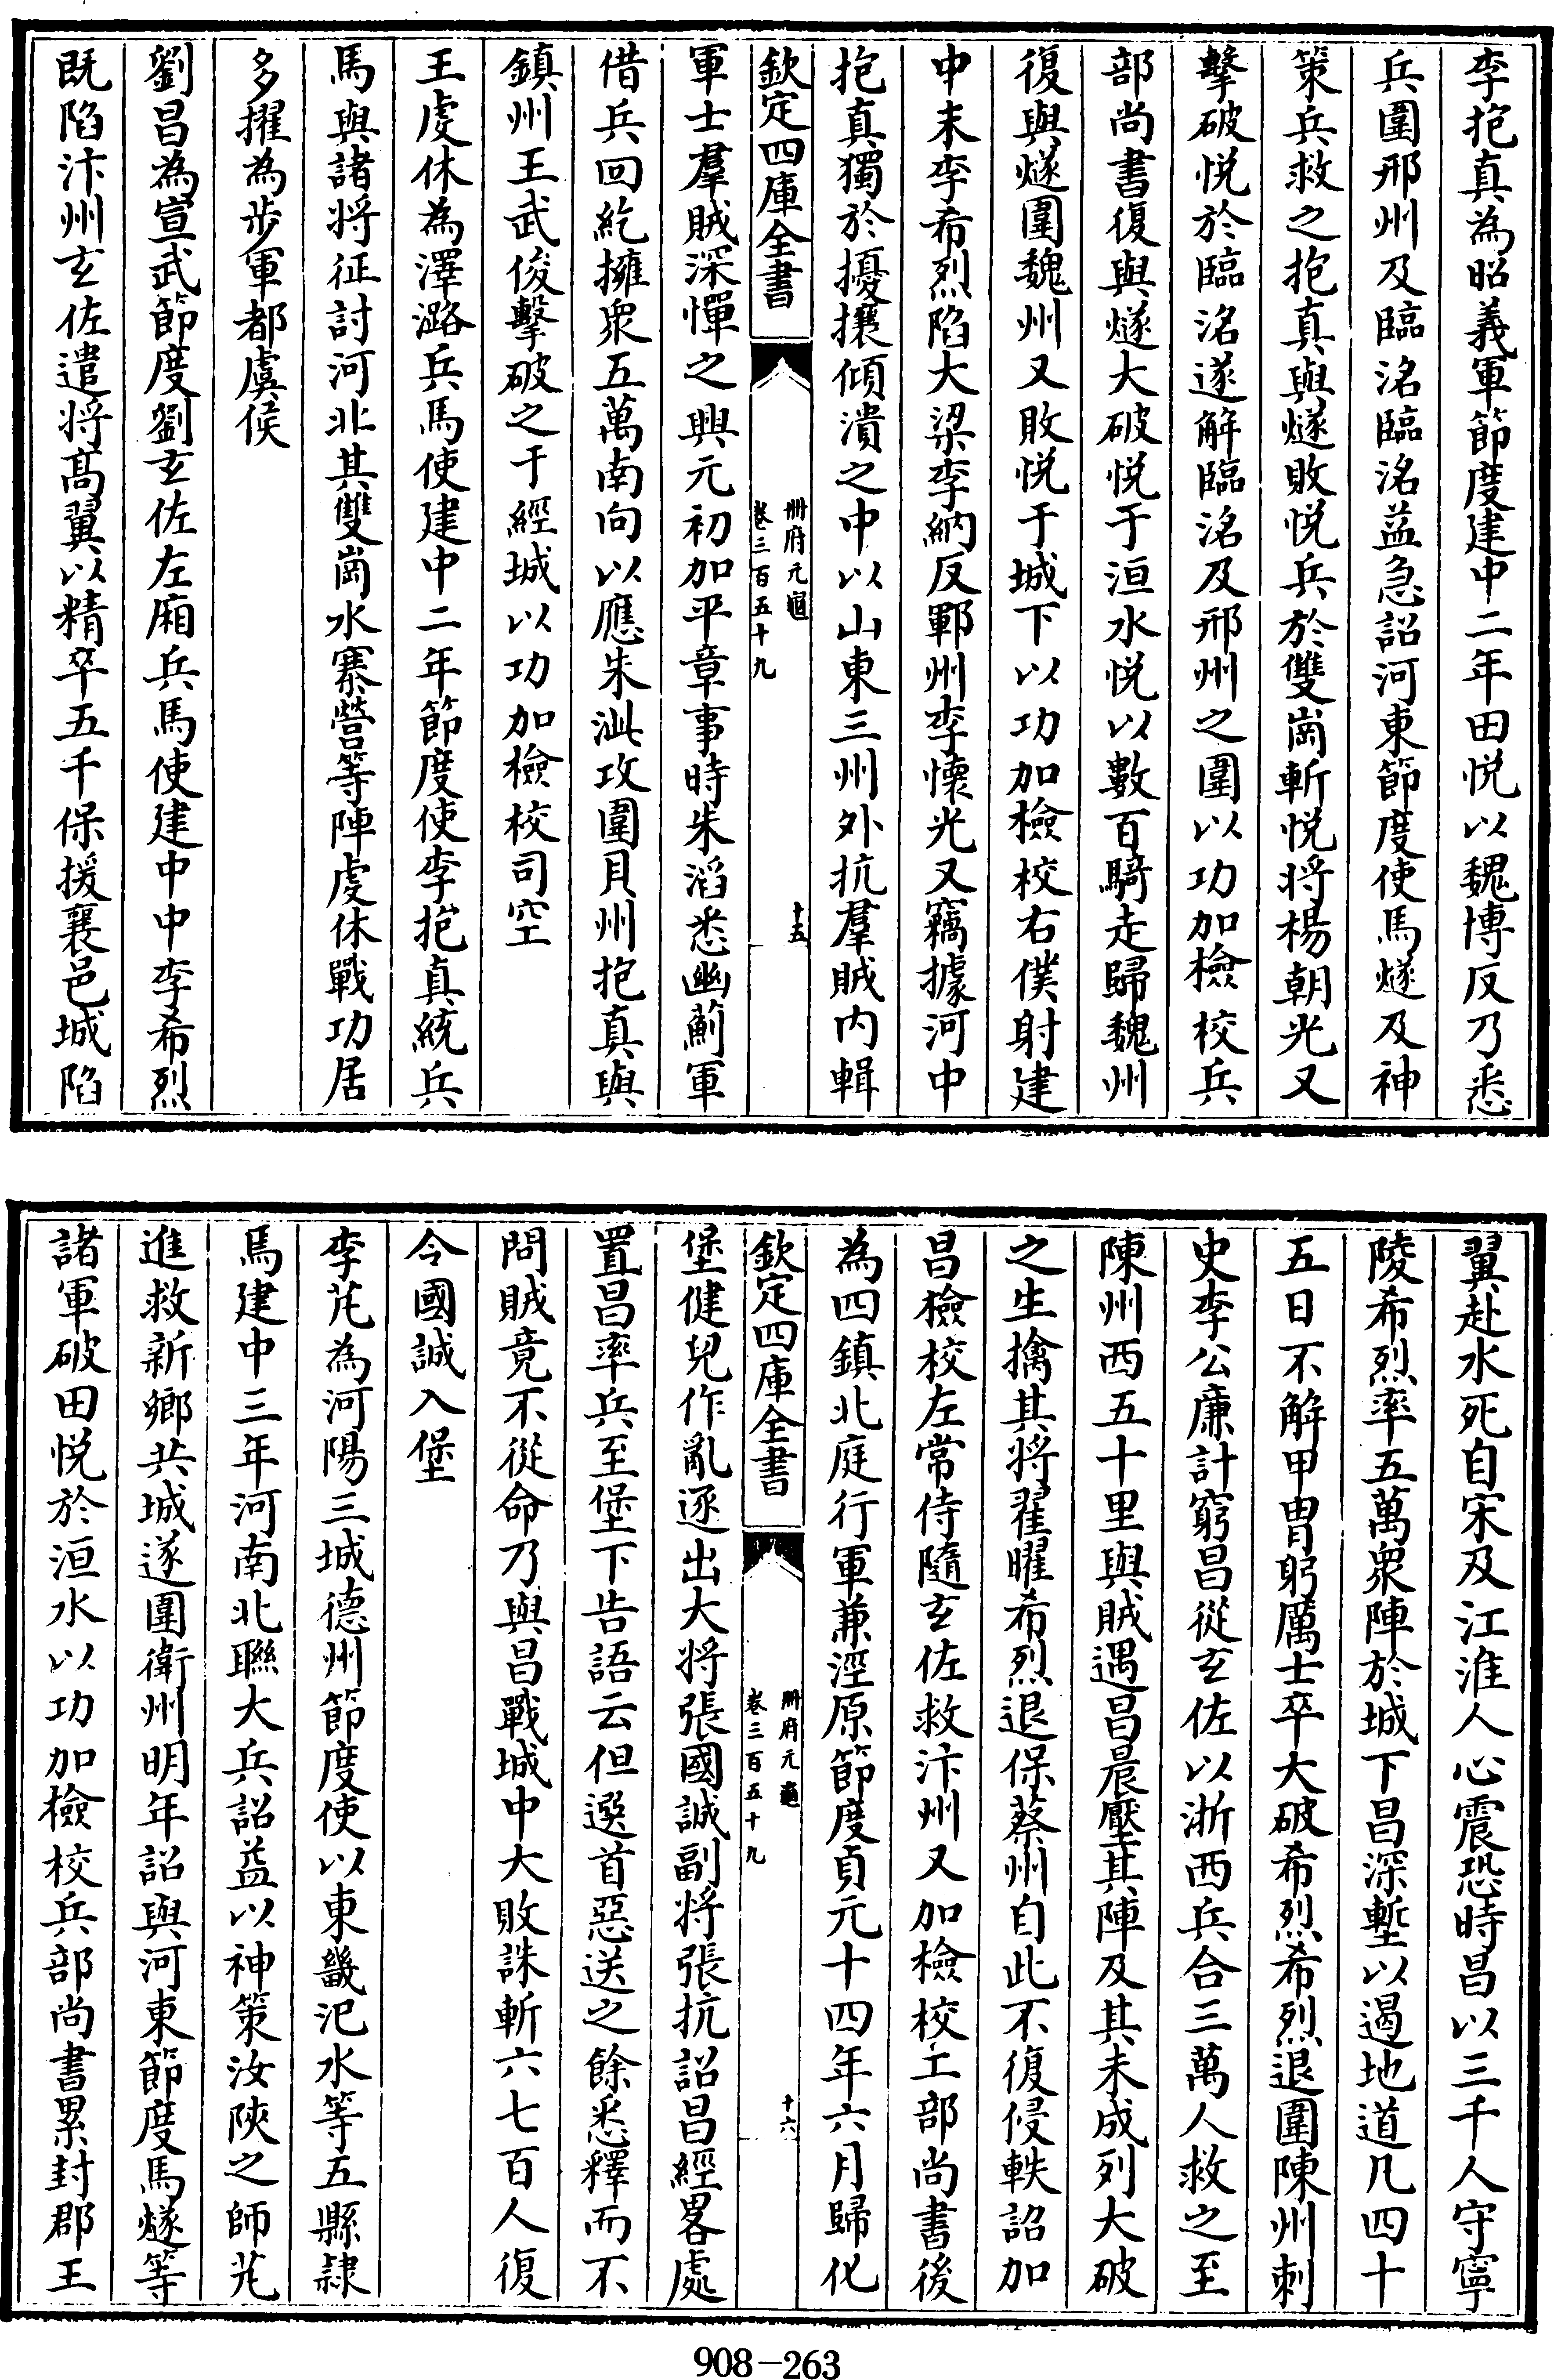 李抱真為昭義軍節度建中二年田悅以魏博反乃悉
兵圍邢州及臨洺臨洺益急詔河東節度使馬燧及神
策兵救之抱真與燧敗悅兵於雙崗斬悅將楊朝光又
擊破悅於臨洺遂解臨洺及邢州之圍以功加檢校兵
部尚書復與燧大破悅于洹水悅以數百騎走歸魏州
復與燧圍魏州又敗悅于城下以功加檢校右僕射建
中末李希烈陷大梁李納反鄆州李懷光又竊據河中
抱真獨於擾攘傾潰之中以山東三州外抗羣賊内輯
欽定四庫全書
冊府元龜
卷三百五十九
十五
軍士羣賊深憚之興元初加平章事時朱滔悉幽薊軍
借兵回紇擁衆五萬南向以應朱泚攻圍貝州抱真與
鎮州王武俊擊破之于經城以功加檢校司空
王虔休為澤潞兵馬使建中二年節度使李抱真統兵
馬與諸將征討河北其雙崗水寨營等陣虔休戰功居
多擢為步軍都虞候
劉昌為宣武節度劉玄佐左廂兵馬使建中中李希烈
既陷汴州玄佐遣將高翼以精卒五千保援襄邑城陷
翼赴水死自宋及江淮人心震恐時昌以三千人守寧
陵希烈率五萬衆陣於城下昌深塹以遏地道凡四十
五日不解甲胄躬厲士卒大破希烈希烈退圍陳州刺
史李公廉計窮昌從玄佐以浙西兵合三萬人救之至
陳州西五十里與賊遇昌晨壓其陣及其未成列大破
之生擒其將翟曜希烈退保蔡州自此不復侵軼詔加
昌檢校左常侍隨玄佐救汴州又加檢校工部尚書後
為四鎮北庭行軍兼涇原節度貞元十四年六月歸化
欽定四庫全書
冊府元龜
卷三百五十九
十六
堡健兒作亂逐出大將張國誠副將張抗詔昌經畧處
置昌率兵至堡下告語云但選首惡送之餘悉釋而不
問賊竟不從命乃與昌戰城中大敗誅斬六七百人復
令國誠入堡
李芃為河陽三城德州節度使以東畿汜水等五縣隷
焉建中三年河南北聯大兵詔益以神策汝陝之師芃
進救新鄉共城遂圍衛州明年詔與河東節度馬燧等
諸軍破田悅於洹水以功加檢校兵部尚書累封郡王
908-263